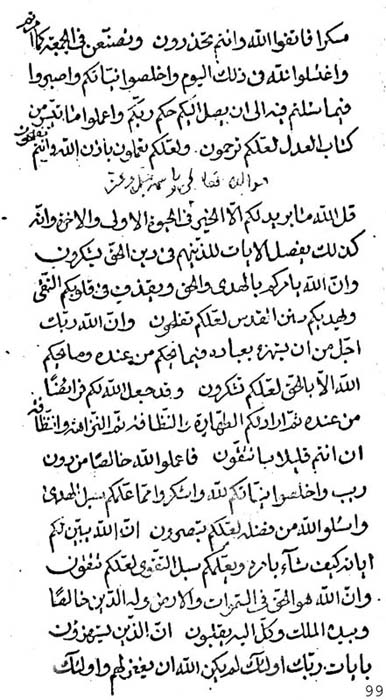 مسكرا فاتقوا الله وانتم تحذرون ويضعّن في الجمعة كما
واغسلوا لله في ذلك اليوم واخلصوا نياتكم واصبروا
فيما سئلتم فيه الى ان يصل اليكم حكم ربكم واعلموا ما
كتاب العدل لعلكم ترحمون ولعلكم بأذن الله وانتم
قل الله ما يريد لكم الا الخير في الحيوة الاولى والاخرة وانه
كذلك يفصل الايات للذينهم في دين الحق يشكرون
وان الله يأمركم بالهدى والحق ويقذف في قلوبكم التقى
ويهديكم سنن القدس لعلكم تفلحون وان الله ربك
اجل من ان بعباده فيما نهيكم من عنده وما نهيكم
الله الا بالحق لعلكم تشكرون وقد جعل الله لكم فرائضًا
من عنده ثم اراد لكم الطهارة والنظافة ثم النزاهة وانظافة
ان انتم قليلا ما تتقون فاعملوا لله خالصًا من دون
ريب واخلصوا نياتكم لله واشكروا مما علمكم سبل الهدى
واسئلوا الله من فضله لعلكم تبصرون ان الله يبين لكم
اياته كيف شآء بامره ويعلمكم سبل التقوى لعلكم تتقون
وان الله هو الحق في السموات والارض وله الدين خالصًا
وبيده الملك وكل اليه يقلبون ان الذين يستهزؤن
بايات ربك اولئك لم يكن الله ان يغفر لهم واولئك
99